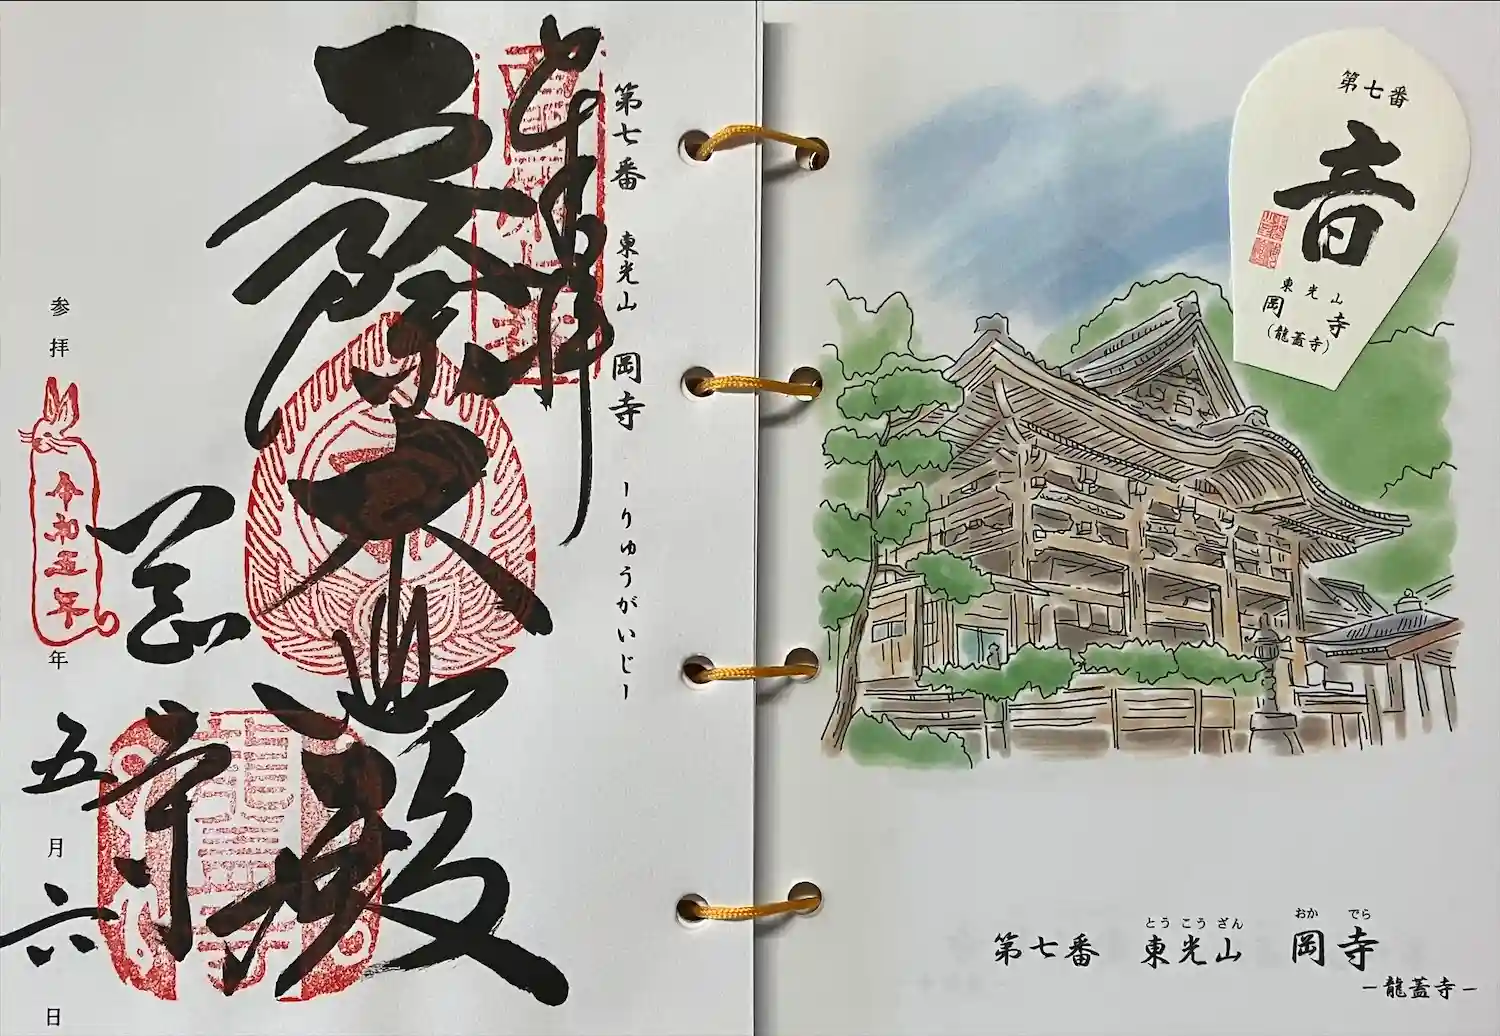 第七番　東光山　岡寺　ーりゅうがいじー
奉拝
岡寺
龍蓋寺
参拝
令和五年
年五月六日
第七番
音
東光山
岡寺
(龍蓋寺)
とうこうざん　おかでら
第七番　東光山　岡寺
－龍蓋寺－